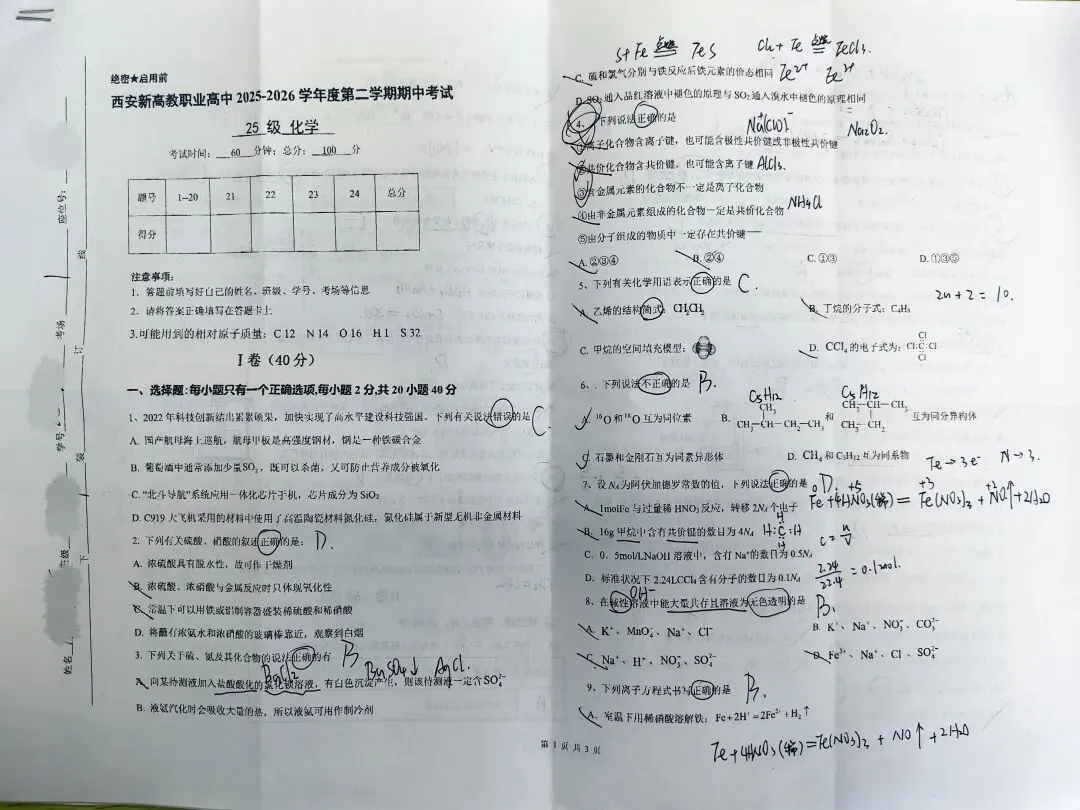 绝密★启用前
西安新高教职业高中 2025-2026 学年度第二学期期中考试
25 级 化学
考试时间: 60 分钟; 总分: 100 分
题号 1--20 21 22 23 24 总分
得分
注意事项:
1. 答题前填写好自己的姓名、班级、学号、考场等信息
2. 请将答案正确填写在答题卡上
3.可能用到的相对原子质量: C 12 N 14 O 16 H 1 S 32
I 卷（40 分）
一、选择题:每小题只有一个正确选项,每小题 2 分,共 20 小题 40 分
1、2022 年科技创新结出累累硕果，加快实现了高水平建设科技强国。下列有关说法错误的是 C
A. 国产航母海上巡航，航母甲板是高强度钢材，钢是一种铁碳合金
B. 葡萄酒中通常添加少量SO₂，既可以杀菌，又可防止营养成分被氧化
C. “北斗导航”系统应用一体化芯片手机，芯片成分为 SiO₂
D. C919 大飞机采用的材料中使用了高温陶瓷材料氮化硅，氮化硅属于新型无机非金属材料
2. 下列有关硫酸、硝酸的叙述正确的是: D.
A. 浓硫酸具有脱水性，故可作干燥剂
B. 浓硫酸、浓硝酸与金属反应时只体现氧化性
C. 常温下可以用铁或铝制容器盛装稀硫酸和稀硝酸
D. 将蘸有浓氨水和浓硝酸的玻璃棒靠近，观察到白烟
3. 下列关于硫、氮及其化合物的说法正确的有 B
BaCl₂ BaSO₄↓ AgCl.
A. 向某待测液加入盐酸酸化的氯化钡溶液，有白色沉淀产生，则该待测液一定含SO₄²⁻
B. 液氨汽化时会吸收大量的热，所以液氨可用作制冷剂
座位号:
考场
学号
班级
姓名
线
订
装
下
S+Fe 点燃 FeS Cl₂+Fe 点燃 FeCl₃.
C. 硫和氯气分别与铁反应后铁元素的价态相同 Fe²⁺ Fe³⁺
D. SO₂通入品红溶液中褪色的原理与 SO₂通入溴水中褪色的原理相同
4、下列说法正确的是
Na⁺[ClO]⁻ Na₂O₂.
①离子化合物含离子键，也可能含极性共价键或非极性共价键
②共价化合物含共价键，也可能含离子键 AlCl₃.
③含金属元素的化合物不一定是离子化合物
④由非金属元素组成的化合物一定是共价化合物 NH₄Cl
⑤由分子组成的物质中一定存在共价键
A. ②③④ B. ②④ C. ①③ D. ①③⑤
5、下列有关化学用语表示正确的是 C.
2n+2=10.
A. 乙烯的结构简式: CH₂CH₂ B. 丁烷的分子式: C₄H₈
C. 甲烷的空间填充模型: D. CCl₄ 的电子式为: Cl:C:Cl Cl Cl
6、. 下列说法不正确的是 B.
C₅H₁₂ C₅H₁₂
A. ¹⁶O 和 ¹⁸O 互为同位素 B. CH₃—CH—CH₂—CH₃ CH₃ 和 CH₂—CH—CH₃ CH₃—CH₂ 互为同分异构体
C. 石墨和金刚石互为同素异形体 D. CH₄ 和 C₅H₁₂ 互为同系物
Fe→3e⁻ N→3.
7、设 Nᴀ为阿伏加德罗常数的值，下列说法正确的是 D.
+5 +3 +2
Fe+4HNO₃(稀)=Fe(NO₃)₃+NO↑+2H₂O
A. 1molFe 与过量稀 HNO₃反应，转移 2Nᴀ个电子
B. 16g 甲烷中含有共价键的数目为 4Nᴀ H:C:H H H
c=n/V
C. 0．5mol/LNaOH 溶液中，含有 Na⁺的数目为 0.5Nᴀ
D. 标准状况下 2.24LCCl₄含有分子的数目为 0.1Nᴀ 2.24/22.4=0.1mol.
OH⁻
8、在碱性溶液中能大量共存且溶液为无色透明的是 B.
A. K⁺、MnO₄⁻、Na⁺、Cl⁻ B. K⁺、Na⁺、NO₃⁻、CO₃²⁻
C. Na⁺、H⁺、NO₃⁻、SO₄²⁻ D. Fe³⁺、Na⁺、Cl⁻、SO₄²⁻
9、下列离子方程式书写正确的是 B.
A. 室温下用稀硝酸溶解铁: Fe+2H⁺=2Fe²⁺+H₂↑
Fe+4HNO₃(稀)=Fe(NO₃)₃+NO↑+2H₂O
第 1 页 共 3 页